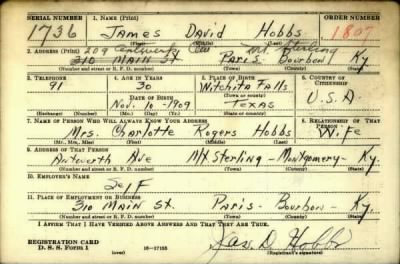 SERIAL NUMBER 1. NAME (Print) ORDER NUMBER
1736 James David Hobbs 1807
(First) (Middle) (Last)
2. ADDRESS (Print) 209 Ave Mt Sterling
310 MAIN ST Paris Bourbon Ky
(Number and street or R. F. D. number) (Town) (County) (State)
3. TELEPHONE 4. AGE IN YEARS 5. PLACE OF BIRTH 6. COUNTRY OF CITIZENSHIP
91 30 Witchita Falls
(Town or county)
DATE OF BIRTH
Nov. 10-1909 Texas U.S.A.
(Exchange) (Number) (Mo.) (Day) (Yr.) (State or country)
7. NAME OF PERSON WHO WILL ALWAYS KNOW YOUR ADDRESS 8. RELATIONSHIP OF THAT PERSON
Mrs. Charlotte Rogers Hobbs Wife
(Mr., Mrs., Miss) (First) (Middle) (Last)
9. ADDRESS OF THAT PERSON
Ave Mt Sterling - Montgomery - Ky.
(Number and street or R. F. D. number) (Town) (County) (State)
10. EMPLOYER'S NAME
Self
11. PLACE OF EMPLOYMENT OR BUSINESS
310 Main St. Paris - Bourbon - Ky.
(Number and street or R. F. D. number) (Town) (County) (State)
I AFFIRM THAT I HAVE VERIFIED ABOVE ANSWERS AND THAT THEY ARE TRUE.
REGISTRATION CARD
D. S. S. Form 1 (over) 16-17105 Jas. D. Hobbs
(Registrant's signature)